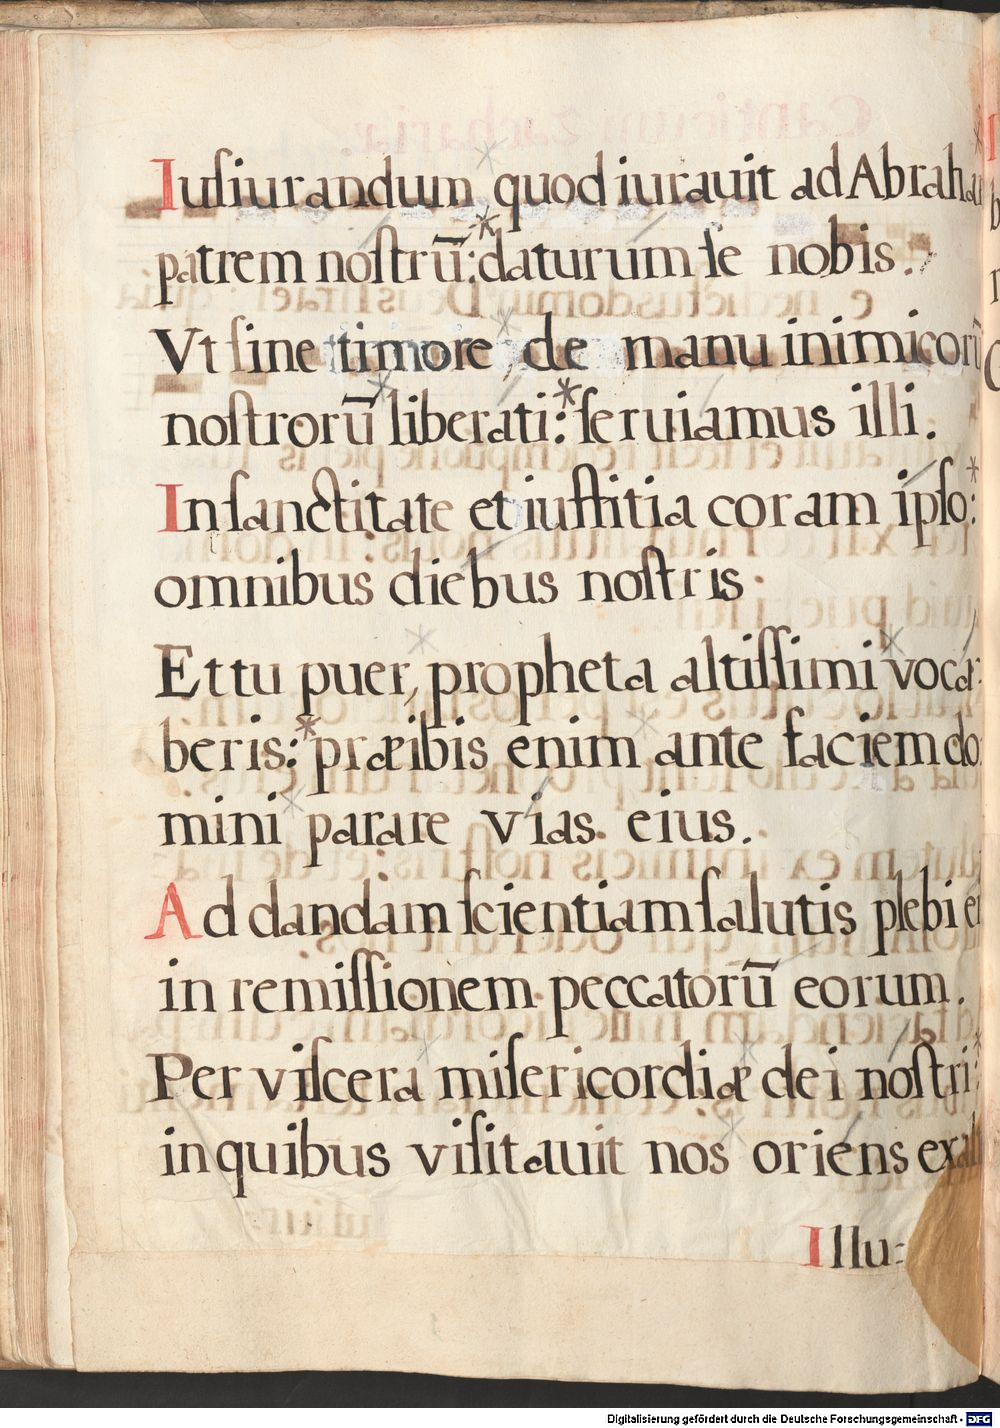 Iuſiurandum quod iurauit ad Abraha
patrem noſtrū: * daturum ſe nobis.
Vt ſine timore, de manu inimicorū
noſtrorū liberati: * ſeruiamus illi.
In ſanctitate et iuſtitia coram ipſo: *
omnibus diebus noſtris.
Et tu puer, propheta altiſſimi vocar-
beris: * præibis enim ante faciem do:
mini parare vias eius.
Ad dandam ſcientiam ſalutis plebi ei
in remiſſionem peccatorū eorum.
Per viſcera miſericordiæ dei noſtri: *
in quibus viſitauit nos oriens ex al
Illu:
Digitalisierung gefördert durch die Deutsche Forschungsgemeinschaft - DFG